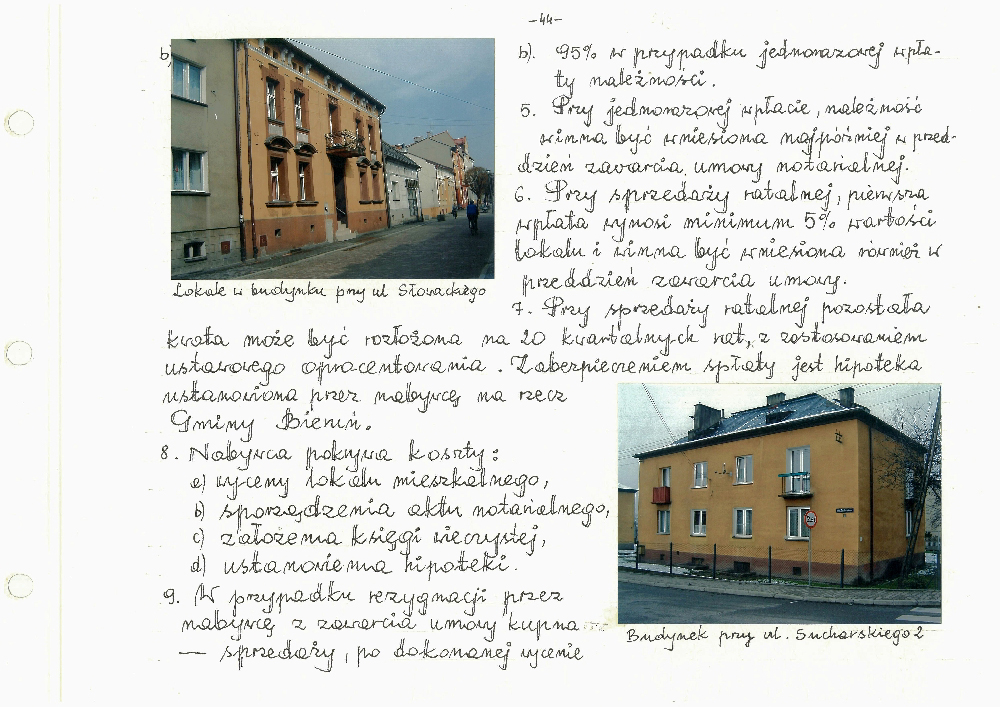 -44-
b)
b). 95% w przypadku jednorazowej wpła-
ty należności.
5. Przy jednorazowej wpłacie, należność
winna być wniesiona najpóźniej w przed-
dzień zawarcia umowy notarialnej.
6. Przy sprzedaży ratalnej, pierwsza
wpłata wynosi minimum 5% wartości
lokalu i winna być wniesiona również w
przeddzień zawarcia umowy.
Lokale w budynku przy ul Słowackiego
7. Przy sprzedaży ratalnej pozostała
kwota może być rozłożona na 20 kwartalnych rat, z zastosowaniem
ustawowego oprocentowania. Zabezpieczeniem spłaty jest hipoteka
ustanowiona przez nabywcę na rzecz
Gminy Bieruń.
8. Nabywca pokrywa koszty:
a) wyceny lokalu mieszkalnego,
b) sporządzenia aktu notarialnego,
c) założenia księgi wieczystej,
d) ustanowienia hipoteki.
9. W przypadku rezygnacji przez
nabywcę z zawarcia umowy kupna
— sprzedaży, po dokonanej wycenie
Budynek przy ul. Sucharskiego 2